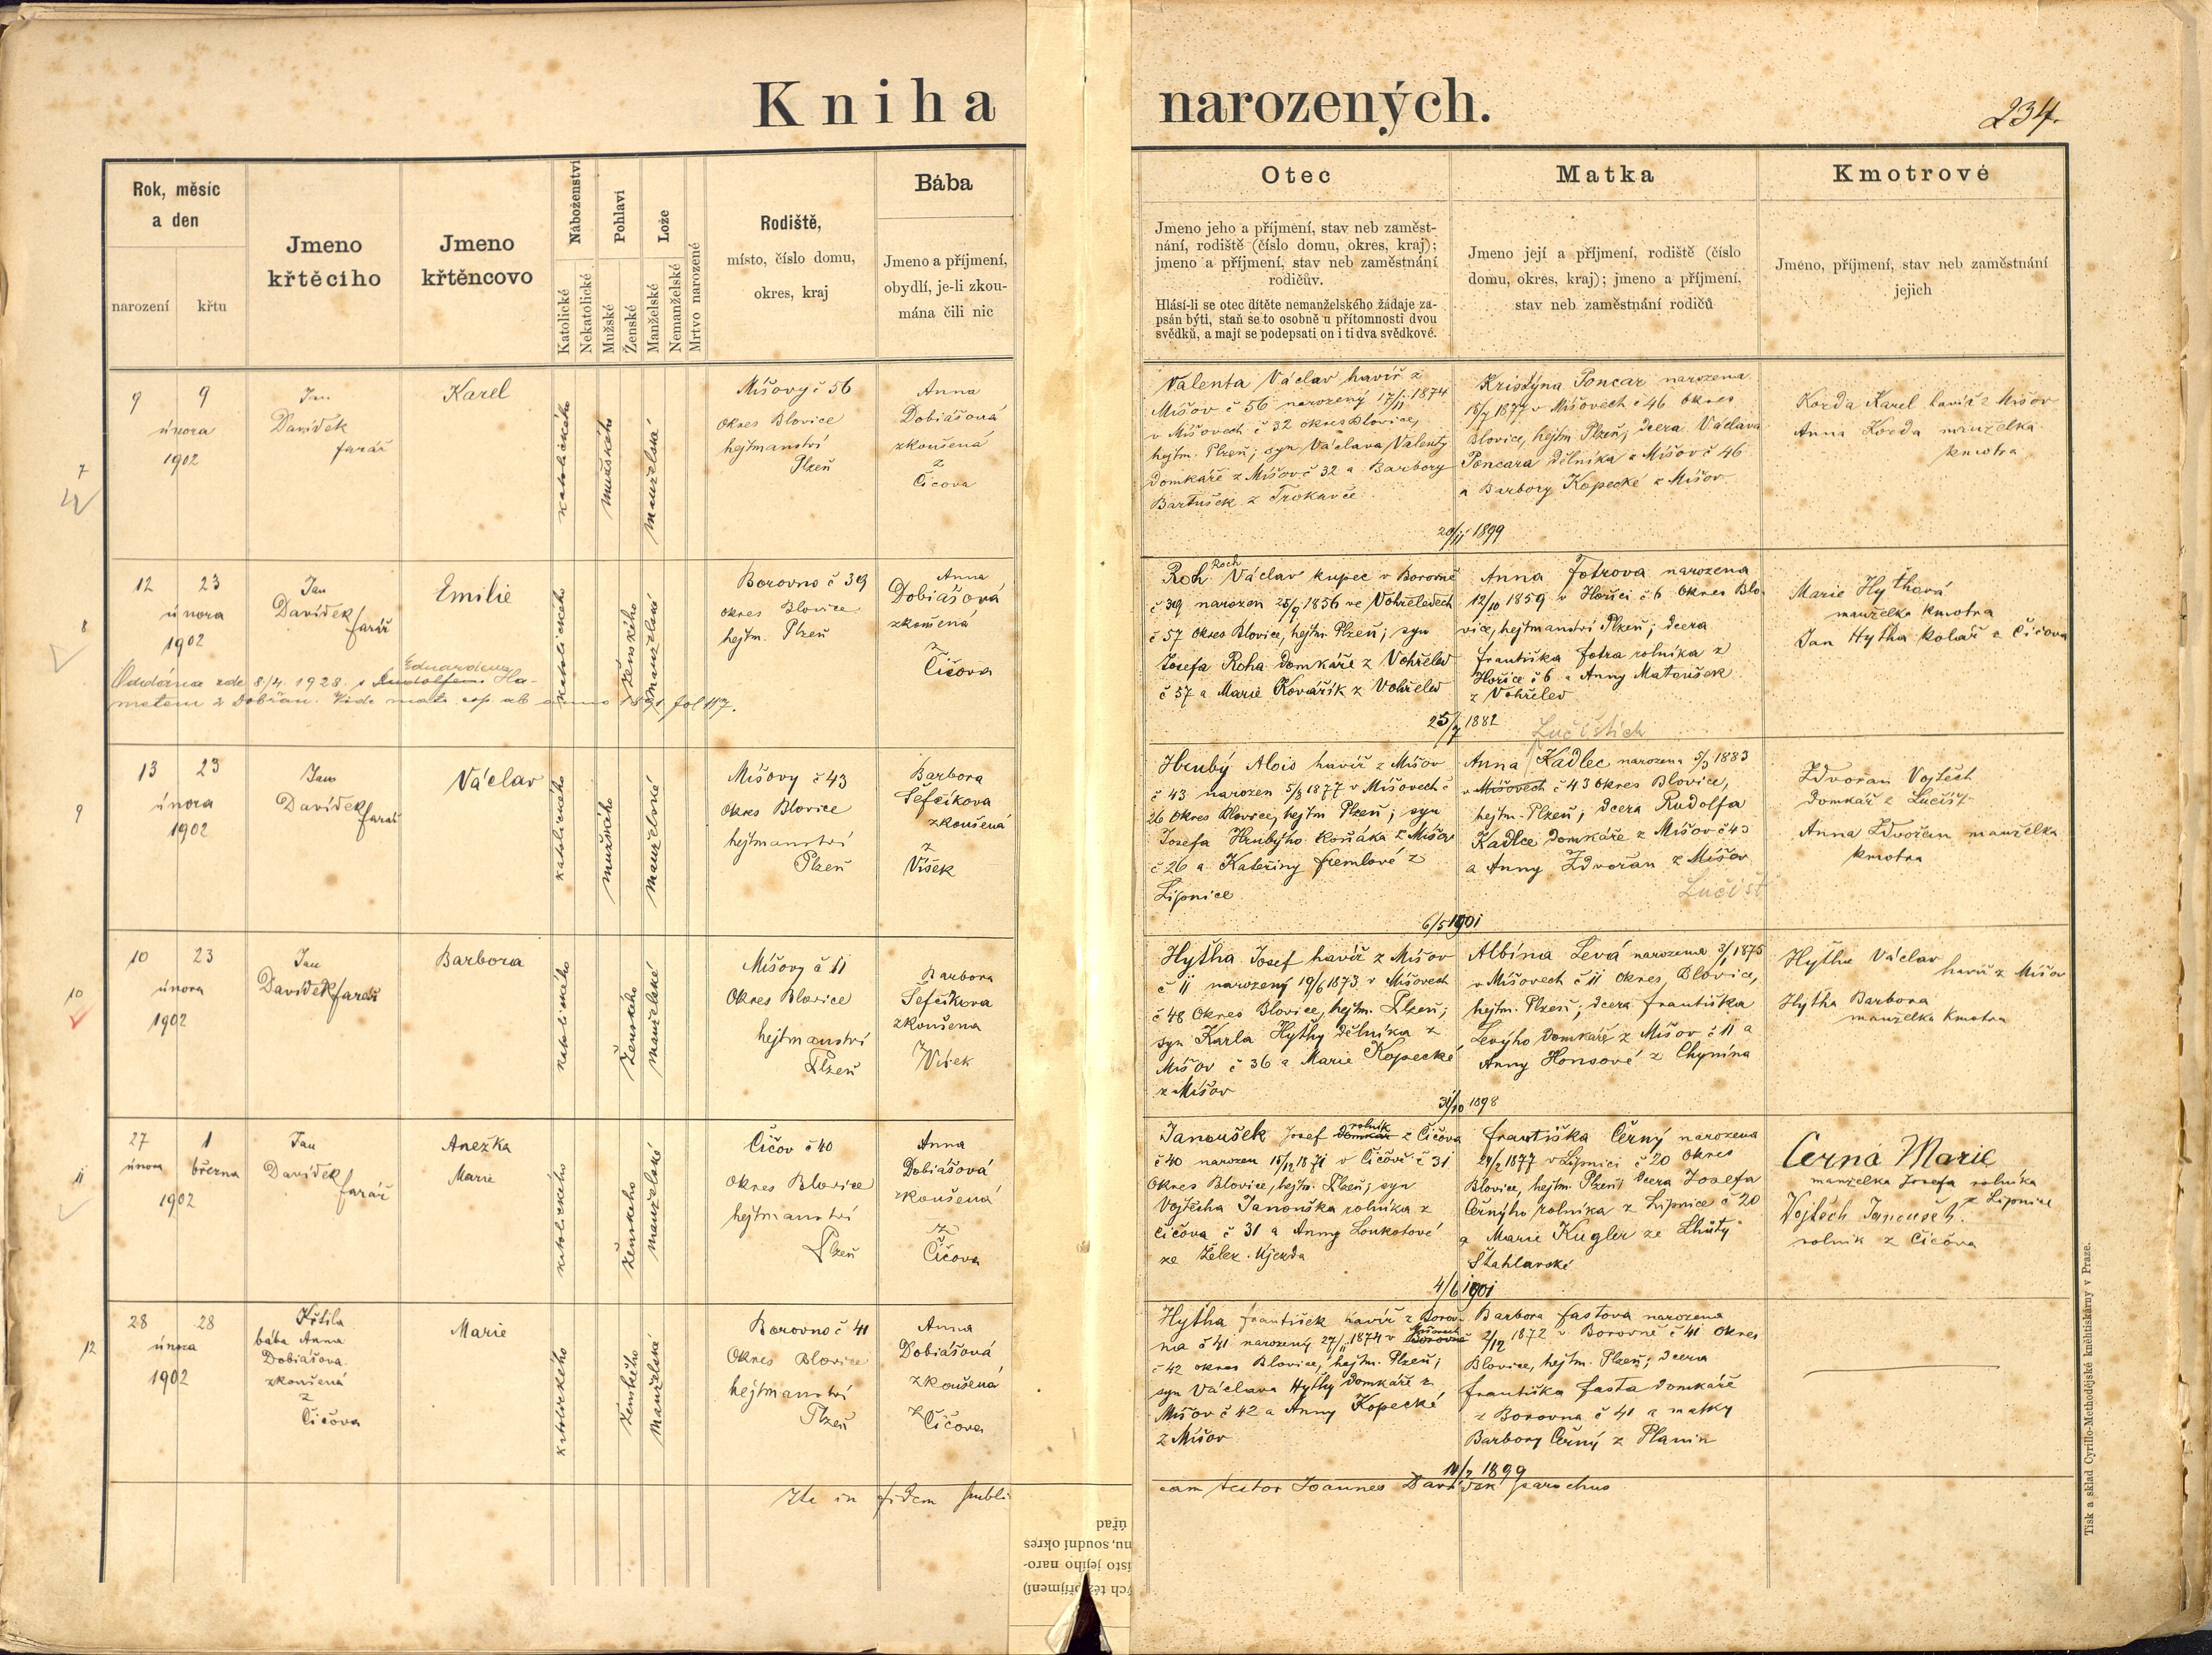 Kniha narozených.
234.
Rok, měsíc
a den
narození
křtu
Jmeno
křtěcího
Jmeno
křtěncovo
Náboženství
Katolické
Nekatolické
Pohlaví
Mužské
Ženské
Lože
Manželské
Nemanželské
Mrtvo narozené
Rodiště,
místo, číslo domu,
okres, kraj
Bába
Jmeno a příjmení,
obydlí, je-li zkou-
mána čili nic
Otec
Jmeno jeho a příjmení, stav neb zaměst-
nání, rodiště (číslo domu, okres, kraj);
jmeno a příjmení, stav neb zaměstnání
rodičův.
Hlásí-li se otec dítěte nemanželského žádaje za-
psán býti, staň se to osobně u přítomnosti dvou
svědků, a mají se podepsati on i ti dva svědkové.
Matka
Jmeno její a příjmení, rodiště (číslo
domu, okres, kraj); jmeno a příjmení,
stav neb zaměstnání rodičů
Kmotrové
Jméno, příjmení, stav neb zaměstnání
jejich
7
9 9
února
1902
Jan
Davídek
farář
Karel
katolického
mužského
manželské
Míšovy č 56
okres Blovice
hejtmanství
Plzeň
Anna
Dobiášová
zkoušená
z
Čičova
Valenta Václav havíř z
Míšov č 56 narozený 17/11 1874
v Míšovech č 32 okres Blovice,
hejtm. Plzeň; syn Václava Valenty
domkáře z Míšov č 32 a Barbory
Bartušek z Trokavce
Kristýna Poncar narozena
15/7 1877 v Míšovech č 46 okres
Blovice, hejtm. Plzeň; dcera Václava
Poncara dělníka z Míšov č 46
a Barbory Kopecké z Míšov
20/11 1899
Korda Karel havíř z Míšov
Anna Korda manželka
kmotra
8
12 23
února
1902
Jan
Davídek
farář
Emilie
katolického
ženského
manželské
Borovno č 39
okres Blovice
hejtm. Plzeň
Anna
Dobiášová
zkoušená
z
Čičova
Oddána zde 8/4. 1928. s Rudolfem Eduardem Ha-
metem z Dobřan. Vide matr. cop. ab anno 1891 fol 117.
Roh Roch Václav kupec v Borovně
č 39 narozen 25/9 1856 ve Vohřeledech
č 57 okres Blovice, hejtm. Plzeň; syn
Josefa Roha domkáře z Vohřeled
č 57 a Marie Kovářík z Vohřeled
Anna Fotrova narozena
12/10 1859 v Hořici č 6 okres Blo-
vice, hejtmanství Plzeň; dcera
Františka Fotra rolníka z
Hořice č 6 a Anny Matoušek
z Vohřeled
25/7 1882
Marie Hythová
manželka kmotra
Jan Hytha kolář z Čičova
9
13 23
února
1902
Jan
Davídek
farář
Václav
katolického
mužského
manželské
Míšovy č 43
okres Blovice
hejtmanství
Plzeň
Barbora
Šefčíkova
zkoušená
z
Víšek
Hrubý Alois havíř z Míšov
č 43 narozen 5/8 1877 v Míšovech č
26 okres Blovice, hejtm Plzeň; syn
Josefa Hrubýho koňáka z Míšov
č 26 a Kateřiny Fremlové z
Lipnice
Lučištích
Anna Kádlec narozena 5/3 1883
v Míšovech č 43 okres Blovice,
hejtm. Plzeň; dcera Rudolfa
Kadlce domkáře z Míšov č 43
a Anny Zdvořan z Míšov
Lučišť
6/5 1901
Zdvořan Vojtěch
domkář z Lučišť
Anna Zdvořan manželka
kmotra
10
10 23
února
1902
Jan
Davídek farář
Barbora
katolického
ženského
manželské
Míšovy č 11
okres Blovice
hejtmanství
Plzeň
Barbora
Šefčíkova
zkoušena
z
Víšek
Hytha Josef havíř z Míšov
č 11 narozený 19/6 1873 v Míšovech
č 48 okres Blovice, hejtm. Plzeň;
syn Karla Hythy dělníka z
Míšov č 36 a Marie Kopecké
z Míšov
Albína Levá narozena 3/1 1875
v Míšovech č 11 okres Blovice,
hejtm. Plzeň; dcera Františka
Levýho domkáře z Míšov č 11 a
Anny Honsové z Chynína
31/10 1898
Hytha Václav
havíř z Míšov
Hytha Barbora
manželka kmotra
11
27 1
února března
1902
Jan
Davídek
farář
Anežka
Marie
katolického
ženského
manželské
Čičov č 40
okres Blovice
hejtmanství
Plzeň
Anna
Dobiášová
zkoušená
z
Čičova
Janoušek Josef domkář rolník z Čičova
č 40 narozen 15/12 1871 v Čičově č 31
okres Blovice, hejtm. Plzeň; syn
Vojtěcha Janouška rolníka z
Čičova č 31 a Anny Loukotové
ze Želez. Újezda
Františka Černý narozena
24/2 1877 v Lipnici č 20 okres
Blovice, hejtm. Plzeň; dcera Josefa
Černýho rolníka z Lipnice č 20
a Marie Kugler ze Lhůty
Šťahlavské
4/6 1901
Černá Marie
manželka Josefa rolníka
z Lipnice
Vojtěch Janoušek.
rolník z Čičova
12
28 28
února
1902
Křtila
bába Anna
Dobiášova
zkoušená
z
Čičova
Marie
katolického
ženského
manželské
Borovno č 41
okres Blovice
hejtmanství
Plzeň
Anna
Dobiášová
zkoušená
z Čičova
Hytha František havíř z Borov-
na č 41 narozený 27/11 1874 v Borovně Míšovech
č 42 okres Blovice, hejtm. Plzeň;
syn Václava Hythy domkáře z
Míšov č 42 a Anny Kopecké
z Míšov
Barbora Fastova narozena
2/12 1872 v Borovně č 41 okres
Blovice, hejtm. Plzeň; dcera
Františka Fasta domkáře
z Borovna č 41 a matky
Barbory Černý z Planin
14/2 1899
in fidem publi
cam testor Joannes Davídek parochus
úřad
nu, soudní okres
ísto jejího naro-
ch též příjmení)
Tisk a sklad Cyrillo-Methodějské knihtiskárny v Praze.